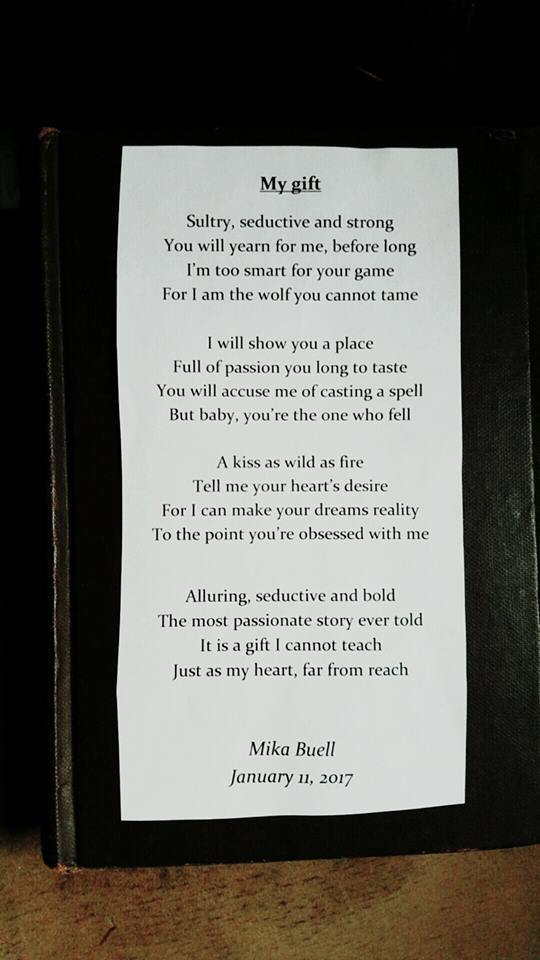 My gift
Sultry, seductive and strong
You will yearn for me, before long
I'm too smart for your game
For I am the wolf you cannot tame
I will show you a place
Full of passion you long to taste
You will accuse me of casting a spell
But baby, you're the one who fell
A kiss as wild as fire
Tell me your heart's desire
For I can make your dreams reality
To the point you're obsessed with me
Alluring, seductive and bold
The most passionate story ever told
It is a gift I cannot teach
Just as my heart, far from reach
Mika Buell
January 11, 2017